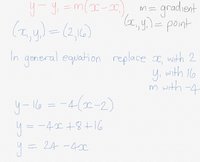 y - y₁ = m(x - x₁) m = gradient
(x₁, y₁) = point
(x₁, y₁) = (2, 16)
In general equation replace x₁ with 2
y₁ with 16
m with -4
y - 16 = -4(x - 2)
y = -4x + 8 + 16
y = 24 - 4x